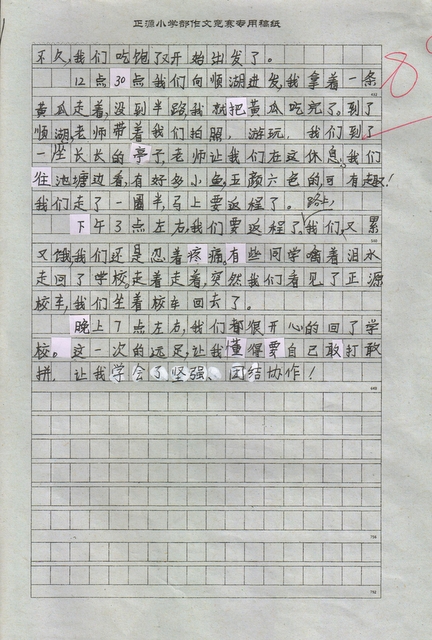 正源小学部作文竞赛专用稿纸
不久,我们吃饱了又开始出发了。
12点30点我们向顺湖进发,我拿着一条
黄瓜走着,没到半路我就把黄瓜吃完了。到了
顺湖,老师带着我们拍照,游玩,我们到了
一座长长的亭子,老师让我们在这休息,我们
往池塘边看,有好多小鱼,五颜六色的,可有趣!
我们走了一圈半,马上要返程了。
路上,
下午3点左右,我们要返程了,我们又累
又饿,我们还是忍着疼痛。有些同学噙着泪水
走回了学校,走着走着,突然我们看见了正源
校车,我们坐着校车回去了。
晚上7点左右,我们都很开心的回了学
校。这一次的远足,让我懂得要自己敢打敢
拼,让我学会了坚强、团结协作!